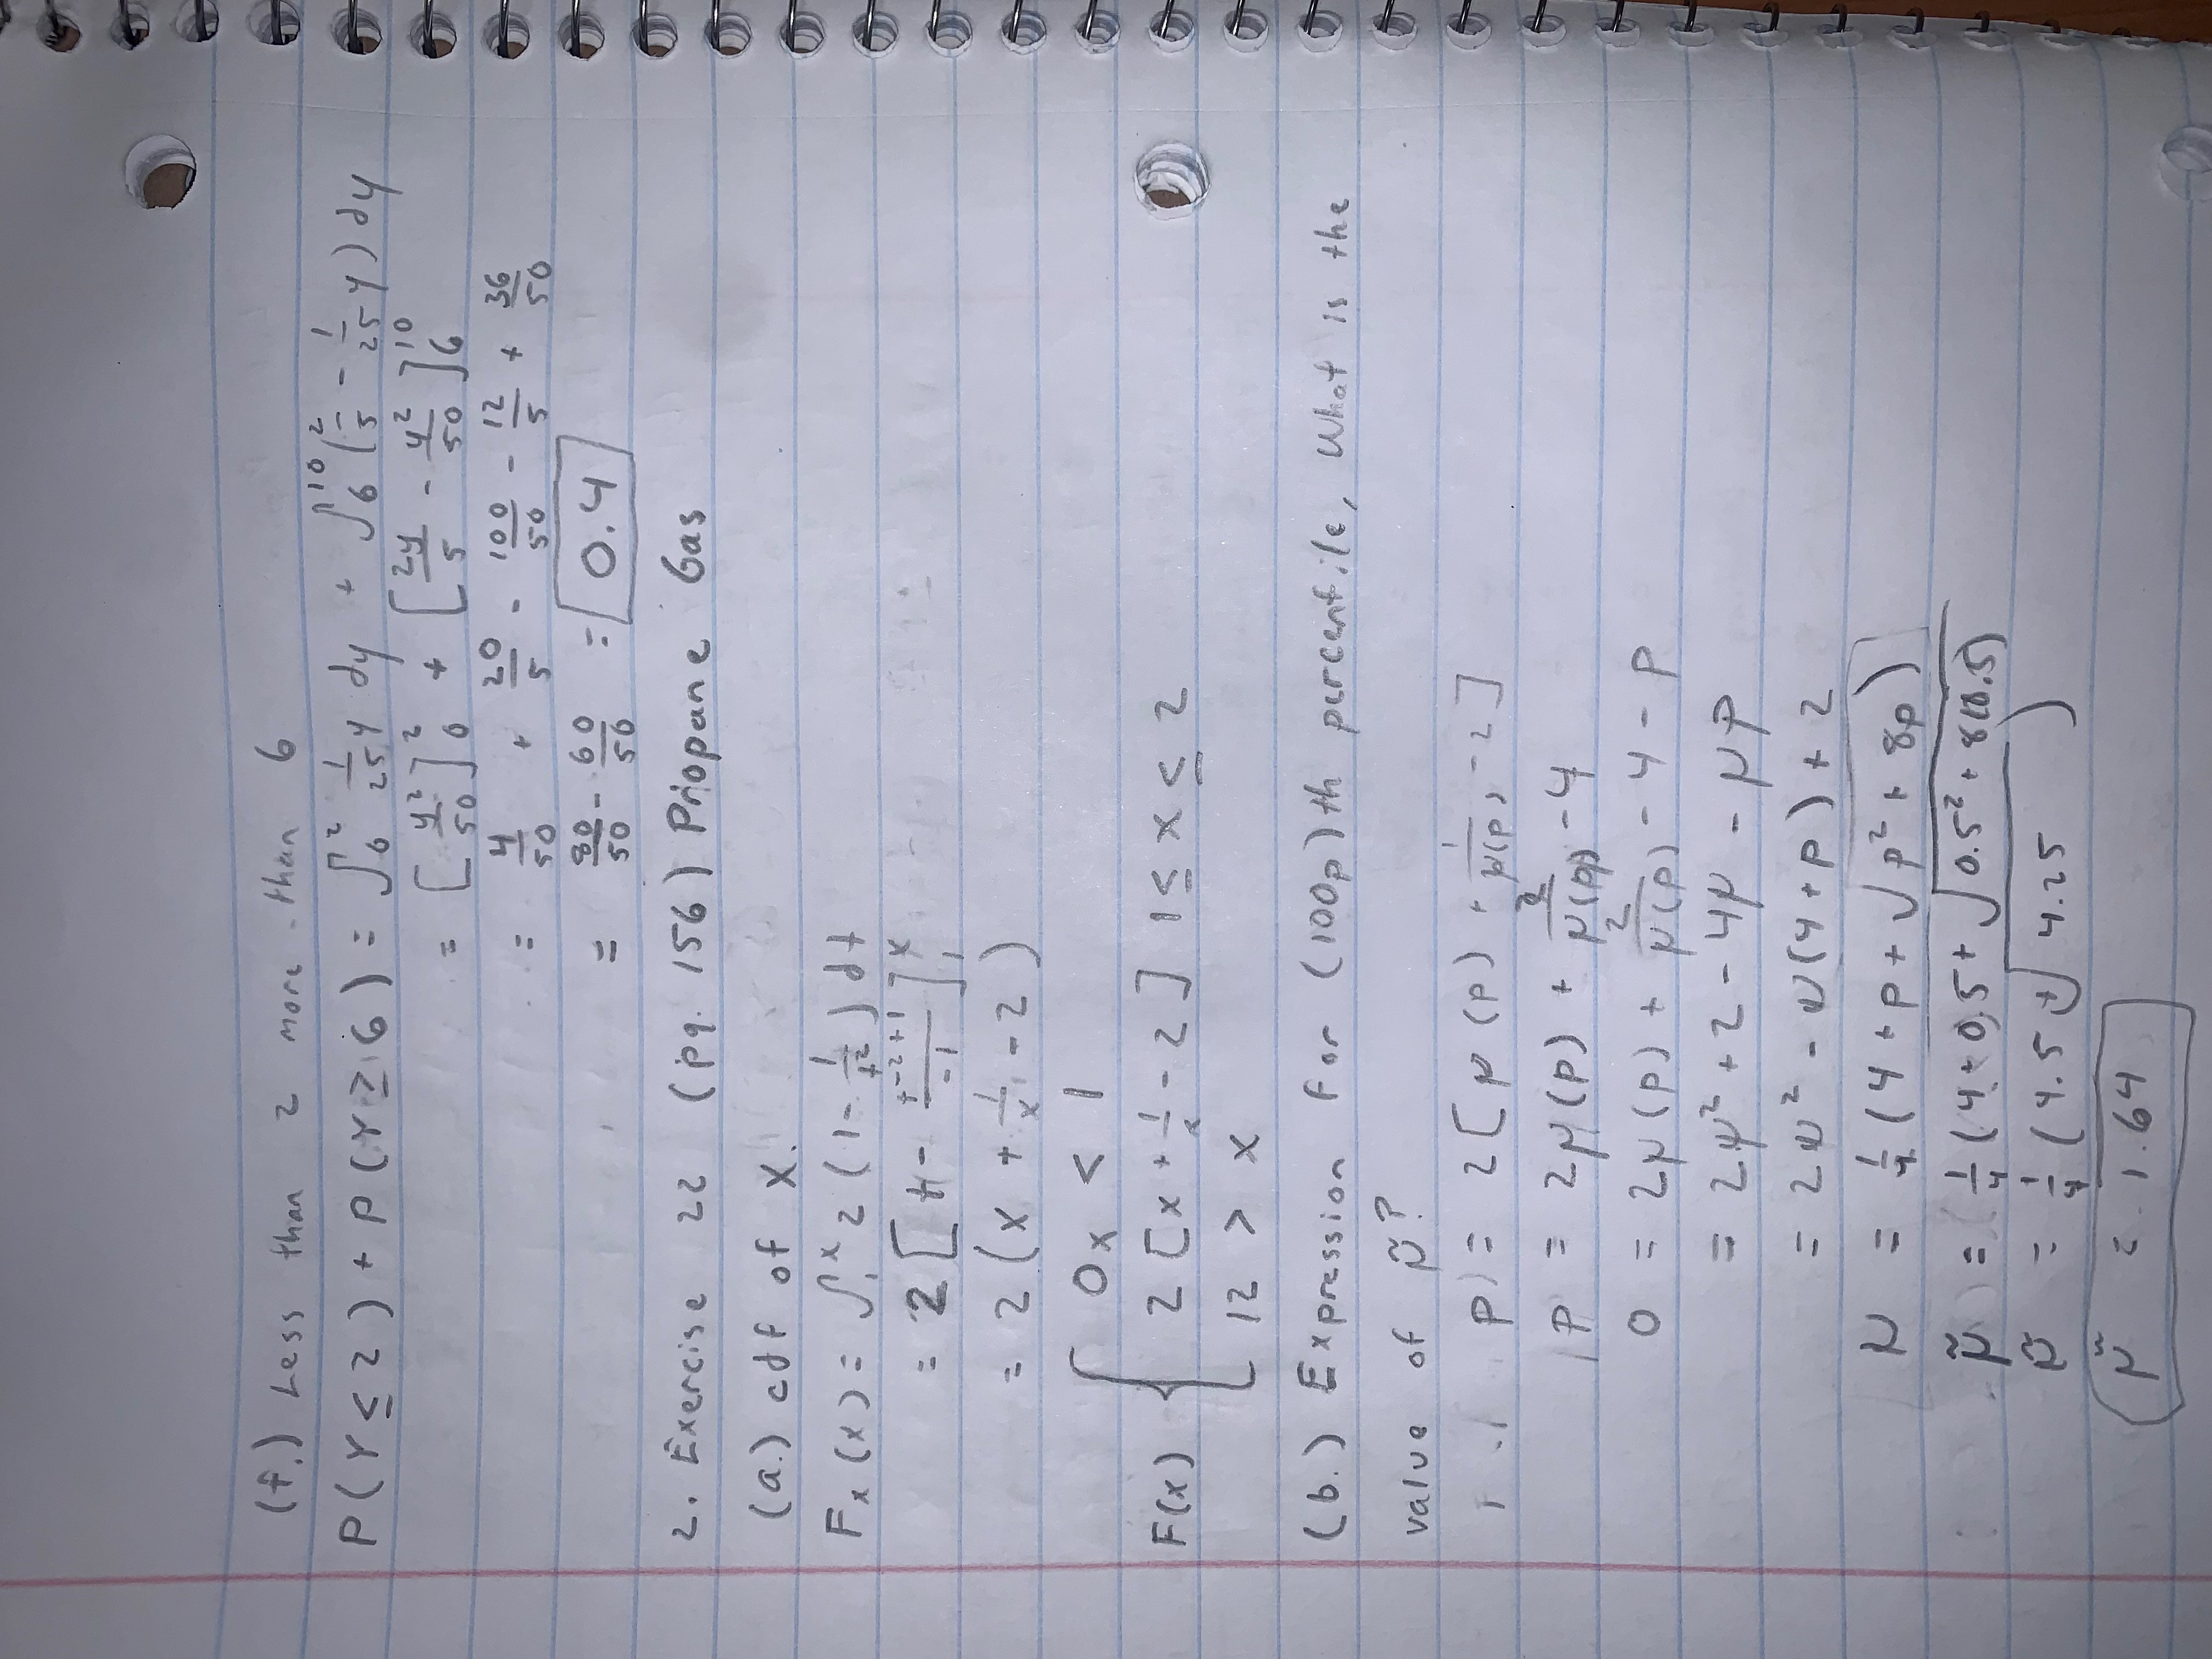 (f.) Less than 2 more than 6
P(Y ≤ 2) + P(Y ≥ 6) = ∫₀² 1/25 y dy + ∫₆¹⁰ (2/5 - 1/25 y) dy
= [y²/50]₀² + [2y/5 - y²/50]₆¹⁰
= 4/50 + 20/5 - 100/50 - 12/5 + 36/50
= 80/50 - 60/50 = 0.4
2. Exercise 22 (pg. 156) Propane Gas
(a.) cdf of X.
Fₓ(x) = ∫₁ˣ 2(1 - 1/t²) dt
= 2[t - t⁻²⁺¹/-1]₁ˣ
= 2(x + 1/x - 2)
0 x < 1
F(x) { 2[x + 1/x - 2] 1 ≤ x ≤ 2
1 2 > x
(b.) Expression for (100p)th percentile, What is the
value of μ̃?
p) = 2[μ(p) + 1/μ(p) - 2]
p = 2μ(p) + 2/μ(p) - 4
0 = 2μ(p) + 2/μ(p) - 4 - p
= 2μ² + 2 - 4μ - μp
= 2μ² - μ(4+p) + 2
μ = 1/4(4 + p + √p² + 8p)
μ̃ = 1/4(4 + 0.5 + √0.5² + 8(0.5)
μ̃ = 1/4(4.5 + √4.25)
μ̃ = 1.64